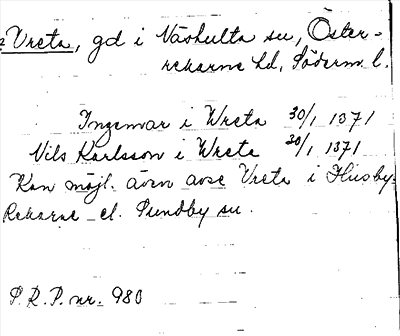 Vreta, gd i Näshulta sn, Öster-
rekarne hd, Söderm. l.
Ingemar i Wreta 30/1 1371
Nils Karlsson i Wreta 30/1 1371
Kan möjl. även avse Vreta i Husby-
Rekarne el. Sundby sn.
P.R.P. nr. 980